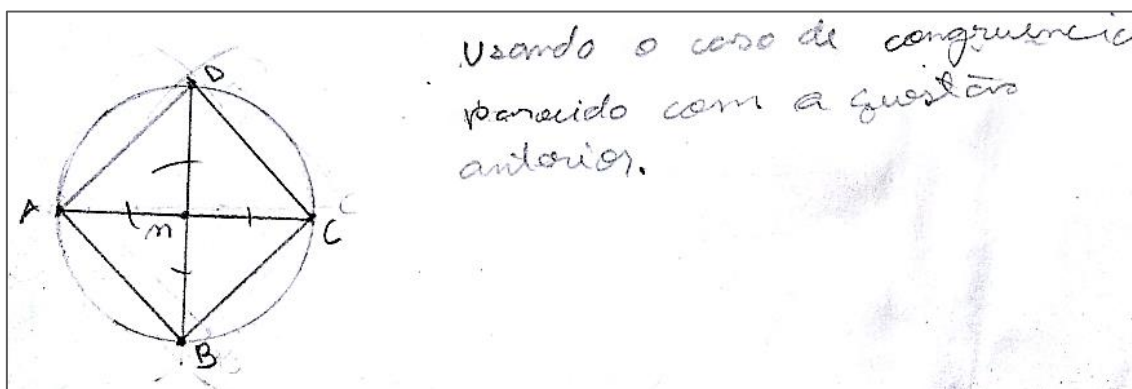 D
Usando o caso de congruencia
parecido com a questão
anterior.
A
m
C
B